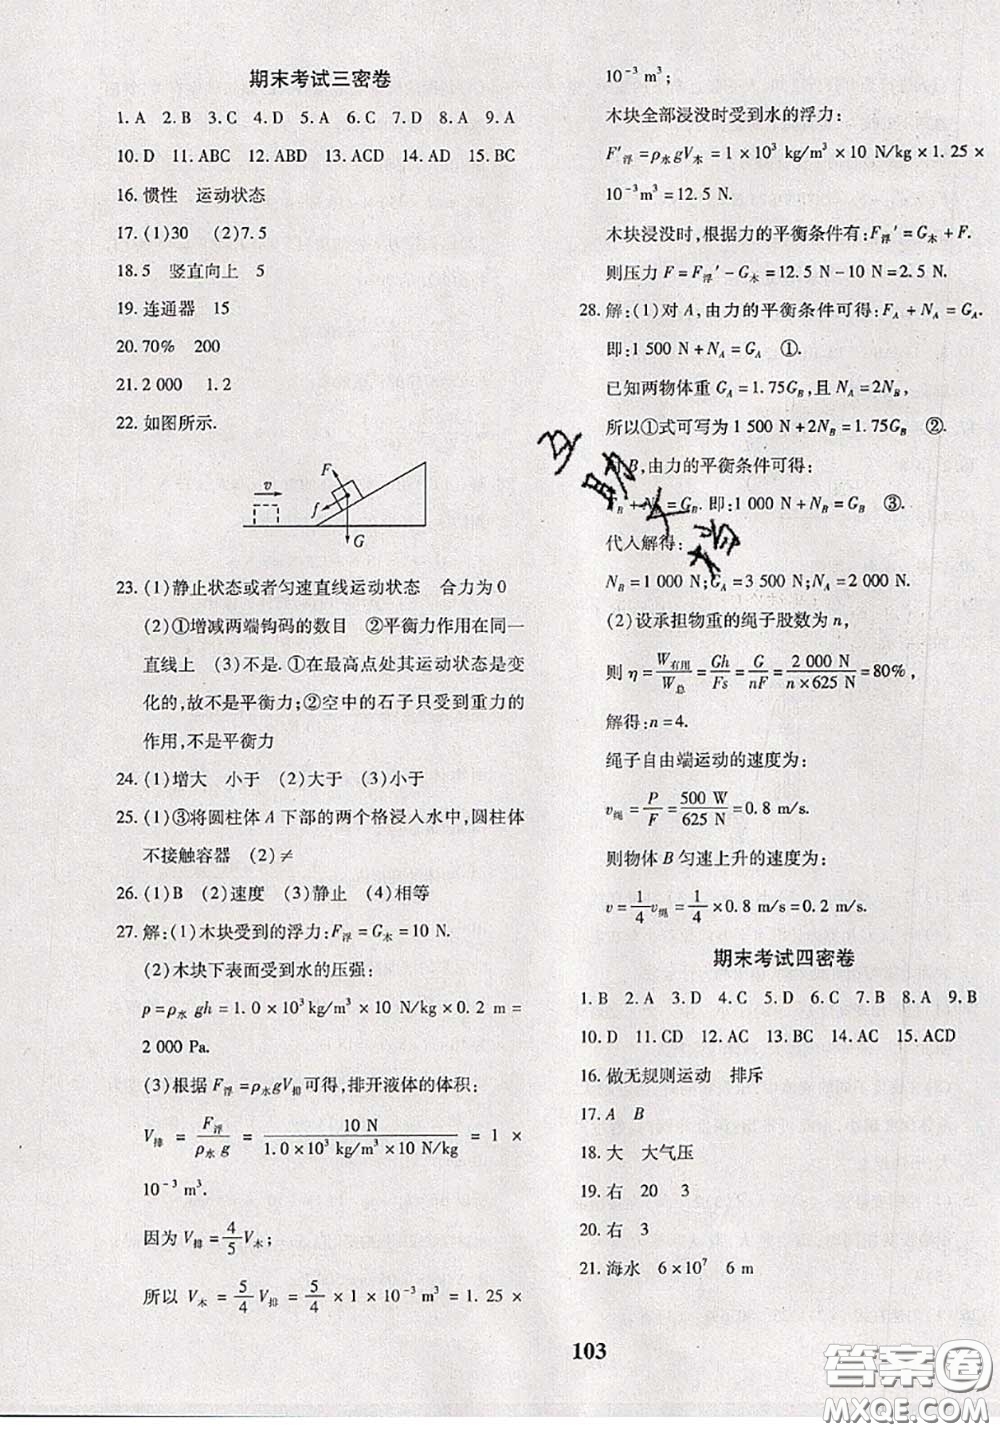 期末考试三密卷
1. A 2. B 3. C 4. D 5. A 6. C 7. D 8. A 9. A
10. D 11. ABC 12. ABD 13. ACD 14. AD 15. BC
16. 惯性 运动状态
17. (1)30 (2)7.5
18. 5 竖直向上 5
19. 连通器 15
20. 70% 200
21. 2 000 1.2
22. 如图所示.
v F f G
23. (1)静止状态或者匀速直线运动状态 合力为0
(2)①增减两端钩码的数目 ②平衡力作用在同一
直线上 (3)不是. ①在最高点处其运动状态是变
化的,故不是平衡力;②空中的石子只受到重力的
作用,不是平衡力
24. (1)增大 小于 (2)大于 (3)小于
25. (1)③将圆柱体 A 下部的两个格浸入水中,圆柱体
不接触容器 (2)≠
26. (1)B (2)速度 (3)静止 (4)相等
27. 解:(1)木块受到的浮力:F浮=G木=10 N.
(2)木块下表面受到水的压强:
p=ρ水 gh=1.0×10³ kg/m³×10 N/kg×0.2 m=
2 000 Pa.
(3)根据 F浮=ρ水gV排可得,排开液体的体积:
V排 = F浮/(ρ水 g) = 10 N/(1.0×10³ kg/m³×10 N/kg) = 1 ×
10⁻³ m³.
因为 V排 = 4/5 V木;
所以 V木 = 5/4 V排 = 5/4 × 1 × 10⁻³ m³ = 1.25 ×
10⁻³ m³;
木块全部浸没时受到水的浮力:
F′浮=ρ水gV木=1×10³ kg/m³×10 N/kg×1.25×
10⁻³ m³=12.5 N.
木块浸没时,根据力的平衡条件有:F浮′=G木+F.
则压力 F=F浮′-G木=12.5 N-10 N=2.5 N.
28. 解:(1)对 A,由力的平衡条件可得:F_A+N_A=G_A.
即:1 500 N+N_A=G_A ①.
已知两物体重 G_A=1.75G_B,且 N_A=2N_B,
所以①式可写为 1 500 N+2N_B=1.75G_B ②.
B,由力的平衡条件可得:
+N_B=G_B. 即:1 000 N+N_B=G_B ③.
代入解得:
N_B=1 000 N;G_A=3 500 N;N_A=2 000 N.
(2)设承担物重的绳子股数为 n,
则 η=W有用/W总=Gh/Fs=G/nF=2 000 N/(n×625 N)=80%,
解得:n=4.
绳子自由端运动的速度为:
v绳=P/F=500 W/625 N=0.8 m/s.
则物体 B 匀速上升的速度为:
v=1/4 v绳=1/4×0.8 m/s=0.2 m/s.
期末考试四密卷
1. B 2. A 3. D 4. C 5. D 6. C 7. B 8. A 9. B
10. D 11. CD 12. AC 13. BC 14. AC 15. ACD
16. 做无规则运动 排斥
17. A B
18. 大 大气压
19. 右 20 3
20. 右 3
21. 海水 6×10⁷ 6 m
互助文档
103
答案圈
MXQE.COM